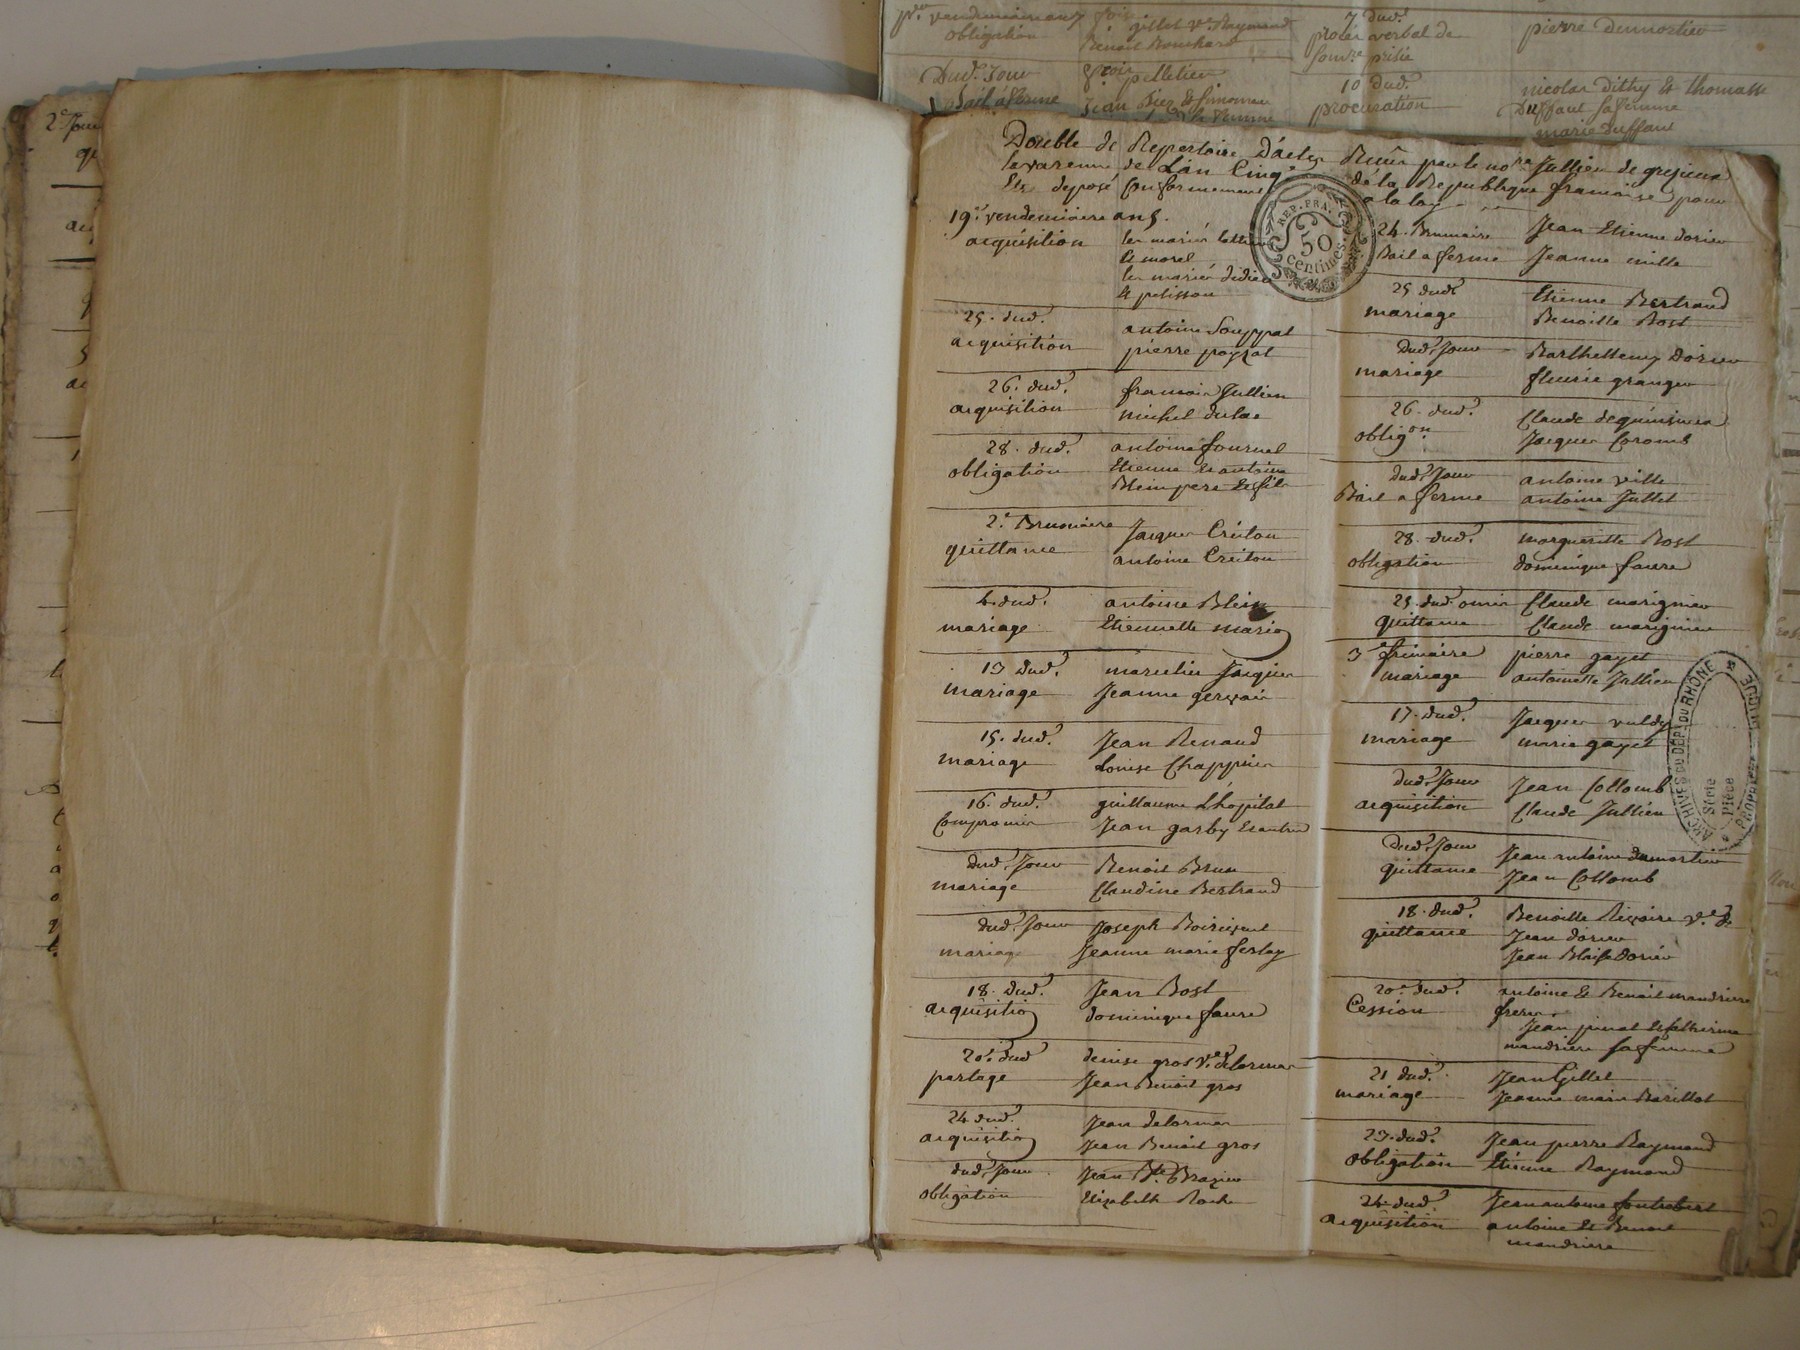 pier vendemiaire an 7
obligation
gillet ve Raymond
Benoit Bouchard
7 dud.
procès verbal de
pierre dumortier
Dud. Jour
Bail à ferme
pelletier
10 dud.
procuration
nicolas Dithy et thomasse
Duffaut sa femme
marie Duffaut
Double de Repertoire D'actes Recûs par le nore Jullien de grejieux
la varenne de L'an Cinq de la Republique francoise pour
Etre deposé Conformement a la loy
19e vendemiaire an 5.
acquisition
les mariés
et morel
les mariés didier
et pelisson
25. dud.
acquisition
antoine Souppat
pierre payrat
26. dud.
acquisition
francois Jullien
michel dulac
28. dud.
obligation
antoine fournel
Etienne et antoine
Blein pere et fils
2e Brumaire
quittance
Jacques Creiton
antoine Creiton
4. dud.
mariage
antoine Blein
Etiennette
13 dud.
mariage
marcelin Jacquier
Jeanne
15. dud.
mariage
Jean Renaud
Louise Chappuis
16. dud.
Compromis
guillaume L'hopital
Jean garby et autres
Dud. Jour
mariage
Benoit Brun
Claudine Bertrand
dud. Jour
mariage
Joseph
Jeanne marie ferlay
18. dud.
acquisition
Jean Bost
dominique faure
20e dud
partage
denise gros ve delorme
Jean Benoit gros
24 dud.
acquisition
Jean delorme
Jean Benoit gros
dud. Jour
obligation
Jean Bte Brazier
Elizabeth
REP. FRA.
50
centimes
24. Brumaire
Bail a ferme
Jean Etienne dorier
Jeanne mille
25 dud.
mariage
Etienne Bertrand
Benoitte Bost
Dud. Jour
mariage
Barthellemy dorier
fleurie granger
26. dud.
obligon
Claude
Jacques Coromb
dud. Jour
Bail a ferme
antoine ville
antoine Jullet
28. dud.
obligation
margueritte Bost
dominique faure
29. dud. omis
quittance
Claude marignier
Claude marignier
3e frimaire
mariage
pierre gayet
antoinette Jullien
17. dud.
mariage
Jacques
marie gayet
dud. Jour
acquisition
Jean Collomb
Claude Jullien
Dud. Jour
quittance
Jean antoine dumortier
Jean Collomb
18. dud.
quittance
Benoitte ve de
Jean dorier
Jean Blaise dorier
20e dud.
Cession
antoine et Benoit mandriere
freres
Jean et Catherine
mandriere sa femme
21 dud.
mariage
Jean Gillet
Jeanne marie Barillot
23. dud.
obligation
Jean pierre Raymond
Etienne Raymond
24. dud.
acquisition
Jean antoine fontrobert
antoine et Benoit
mandriere
ARCHIVES DU DEPt DU RHÔNE
Série
Pièce
PROPRIÉTÉ PUBLIQUE